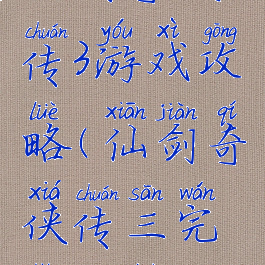 chuán yóu xì gōng
传3游戏攻
lüè xiān jiàn qí
略(仙剑奇
xiá chuán sān wán
侠传三完